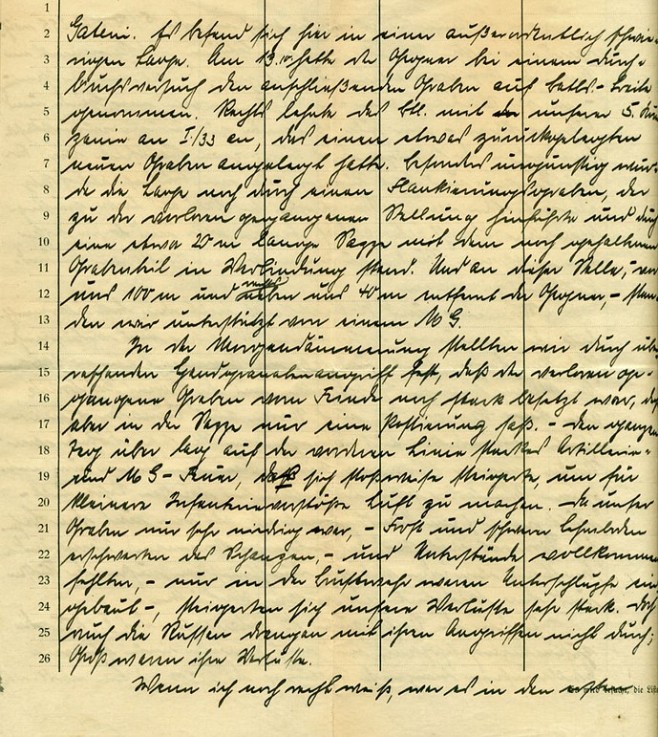 1
2 Gateni. Es befand sich hier in einer außerordentlich schwie-
3 rigen Lage. Am 13. hatte der Gegner bei einem Durch-
4 bruchsversuch den anschließenden Graben auf Batls.-Breite
5 genommen. Rechts lehnte das Btl. mit unserer 5. Kom
6 panie an I./33 an, das einen etwas zurückgelegten
7 neuen Graben angelegt hatte. Besonders ungünstig wur-
8 de die Lage noch durch einen Flankierungsgraben, der
9 zu der verloren gegangenen Stellung hinführte und durch
10 eine etwa 20 m lange Sappe mit dem noch gehaltenen
11 Grabenteil in Verbindung stand. Und an dieser Stelle, - vor
12 uns 100 m und rechts neben uns 40 m entfernt der Gegner, - stan
13 den wir unterstützt von einem M G.
14 In der Morgendämmerung stellten wir durch über
15 raschenden Handgranatenangriff fest, daß der verloren ge-
16 gangene Graben vom Feinde noch stark besetzt war, daß
17 aber in der Sappe nur eine Postierung saß. - Den ganzen
18 Tag über lag auf der vorderen Linie starkes Artillerie-
19 und M G - Feuer, das sich stoßweise steigerte, um für
20 kleinere Infanterievorstöße Luft zu machen. Da unser
21 Graben nur sehr niedrig war, - Frost und schwerer Lehmboden
22 erschwerten das Schanzen, - und Unterstände vollkommen
23 fehlten, - nur in der Brustwehr waren Unterschlupfe ein
24 gebaut -, steigerten sich unsere Verluste sehr stark. Doch
25 auch die Russen drangen mit ihren Angriffen nicht durch;
26 Groß waren ihre Verluste.
Wenn ich noch recht weiß, war es in den ersten die